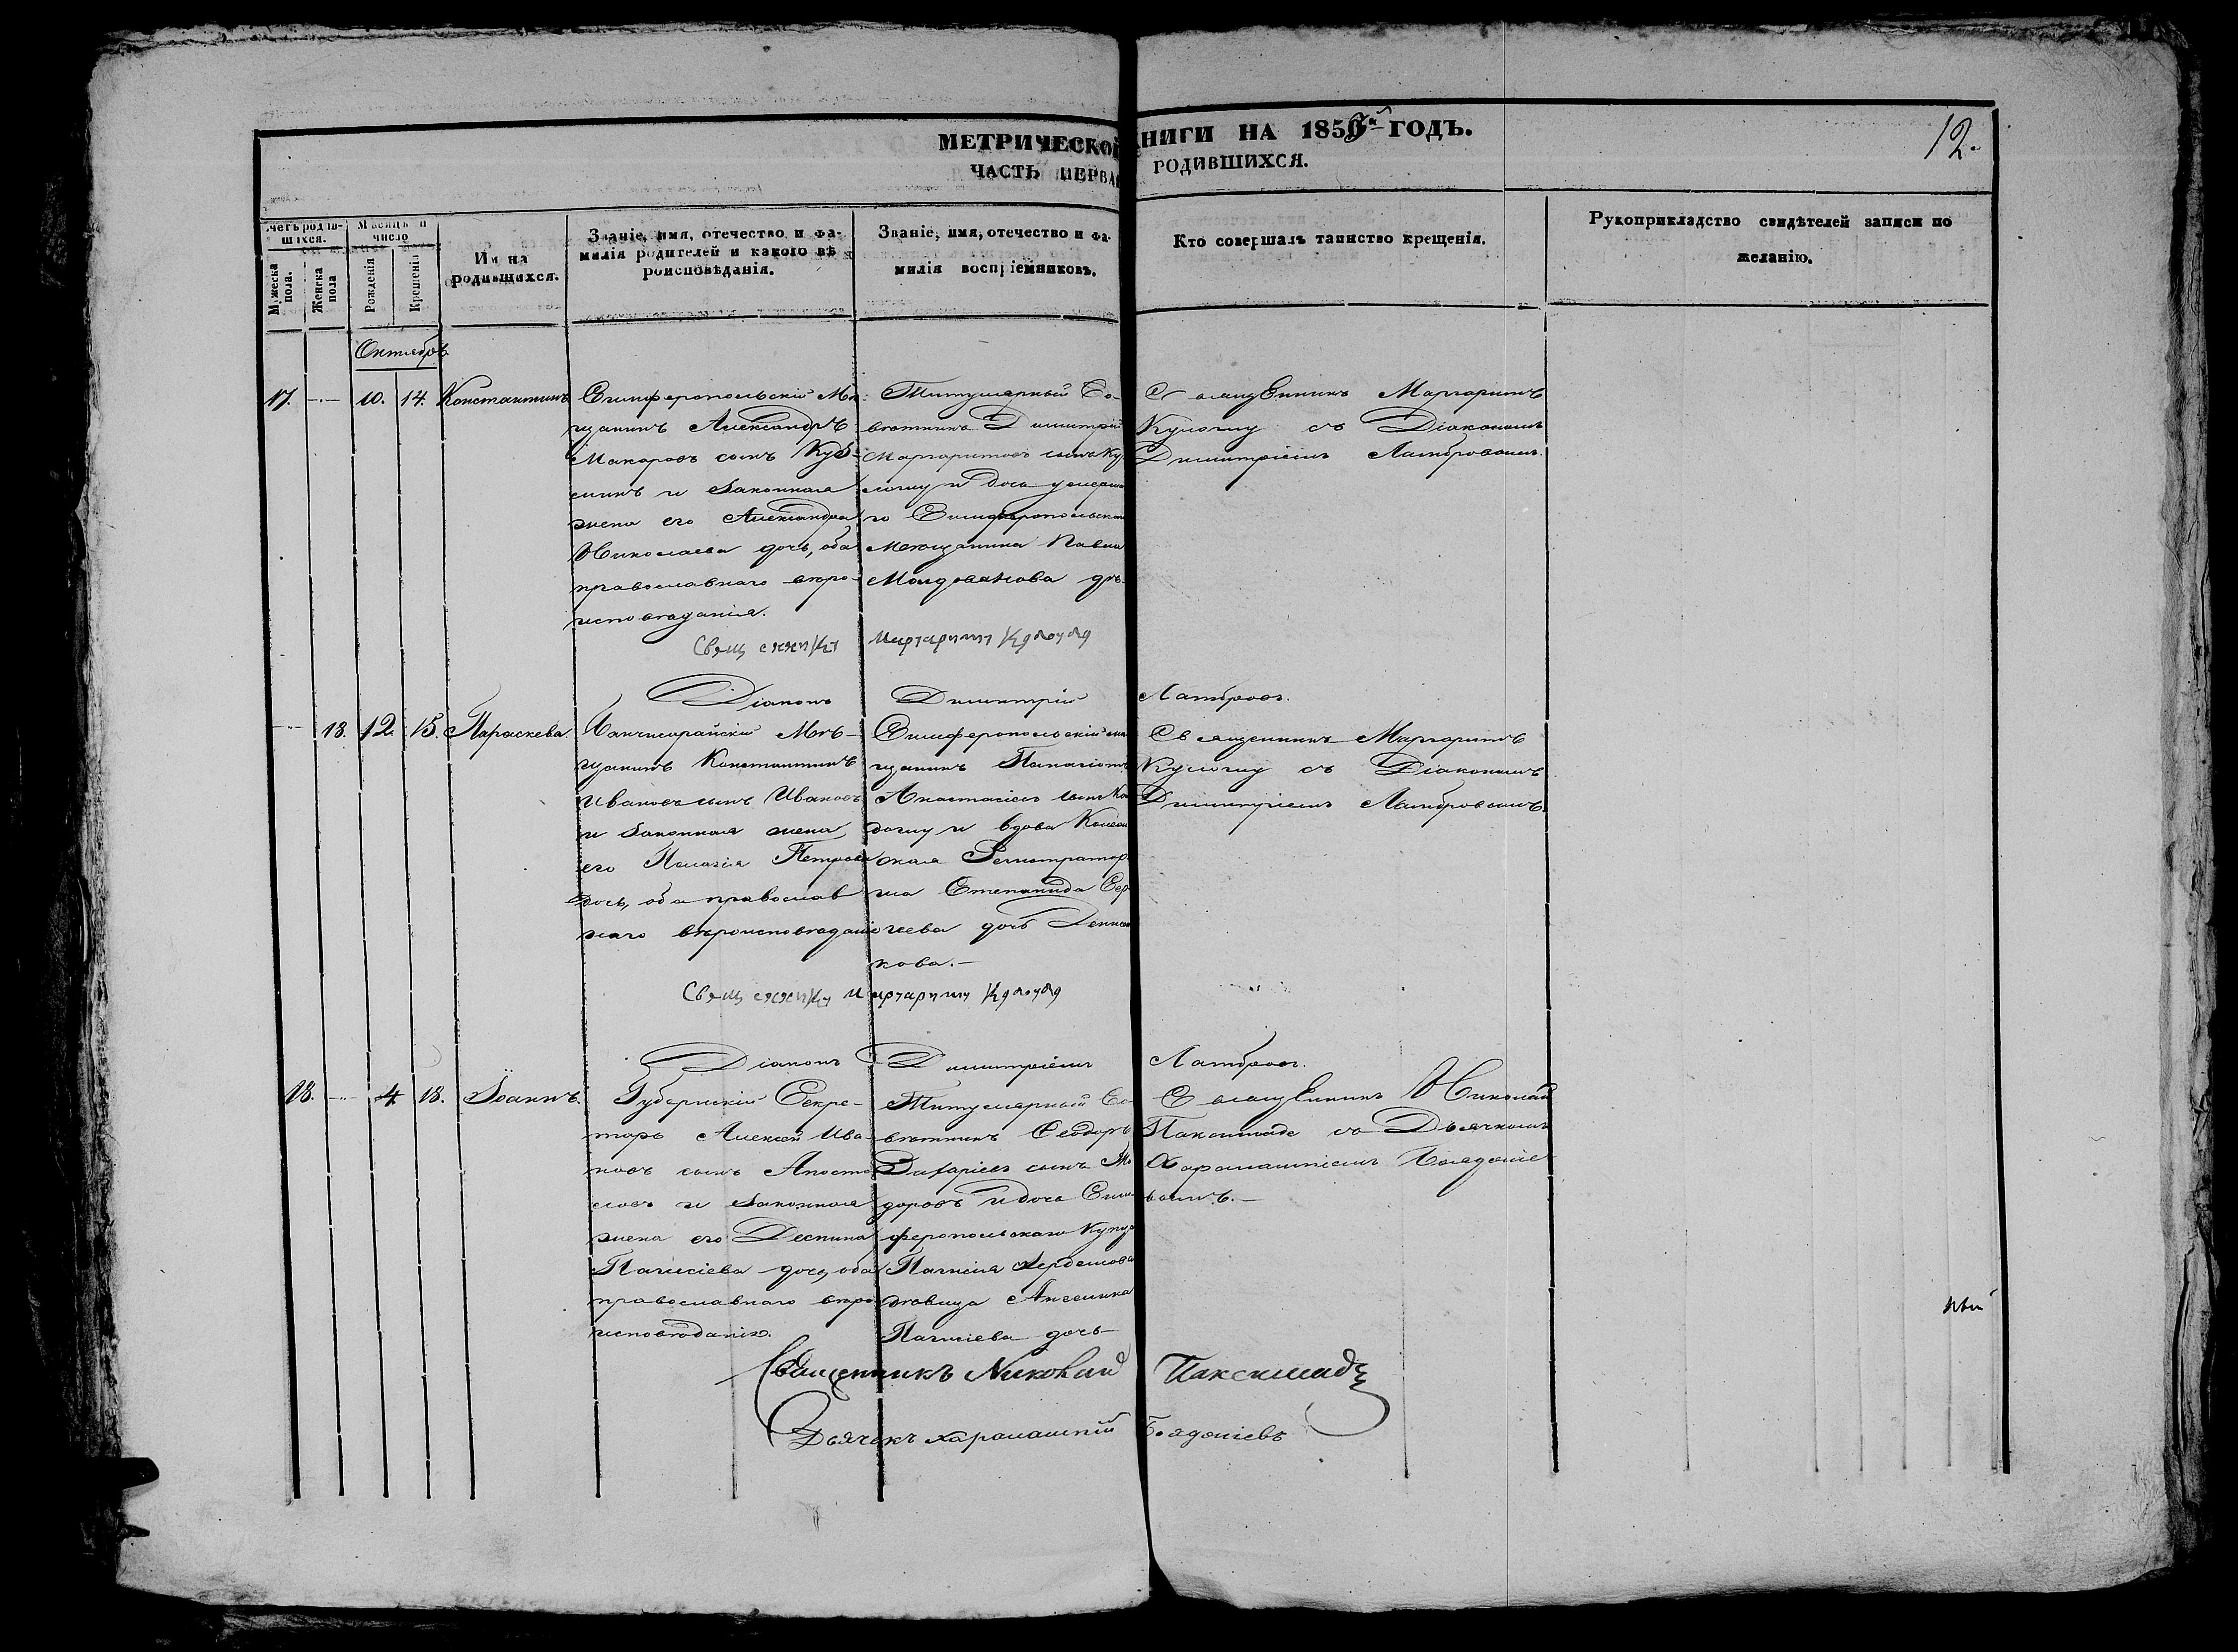 МЕТРИЧЕСКОЙ КНИГИ НА 185 й ГОДЪ.
12.
ЧАСТЬ ПЕРВАЯ РОДИВШИХСЯ.
Счетъ родившихся.
Мѣсяцъ и число
Мужеска пола.
Женска пола
Рожденія
Крещенія
Имена родившихся.
Званіе, имя, отечество и фа-
милія родителей и какого вѣ
роисповѣданія.
Званіе, имя, отечество и фа
милія воспріемниковъ.
Кто совершалъ таинство крещенія.
Рукоприкладство свидѣтелей записи по
желанію.
Октябрь
17. — 10. 14. Константинъ
Симферопольскій Мѣ
щанинъ Александръ
Макаровъ сынъ
и законная
жена его Александра
Николаева дочь, оба
православнаго вѣро-
исповѣданія.
Титулярный Со-
вѣтникъ Димитрій
Маргаритовъ сынъ Ку
логлу и дочь умерша
го Симферопольскаго
Мѣщанина Павла
Молдованова
Священникъ Маргаритъ
Кулоглу съ Діакономъ
Димитріемъ Ламбровымъ.
Священникъ Маргаритъ Кулоглу
Діаконъ Димитрій Ламбровъ.
— 13. 12. 15. Параскева.
Бахчисарайскій Мѣ-
щанинъ Константинъ
Ивановъ сынъ Ивановъ
и законная жена
его Пелагія Петрова
дочь, оба православ
наго вѣроисповѣданія
Симферопольскій мѣ
щанинъ Панагіотъ
Анастасіевъ сынъ
и вдова
ская Регистратор
ша Степанида Сер
гіева дочь
кова. —
Священникъ Маргаритъ
Кулоглу съ Діакономъ
Димитріемъ Ламбровымъ.
Священникъ Маргаритъ Кулоглу
Діаконъ Димитріемъ Ламбровъ.
18. — 4. 18. Іоаннъ.
Губернскій Секре-
тарь Алексѣй Ива-
новъ сынъ Апосто
ловъ и законная
жена его Деспина
Паисіева дочь, оба
православнаго вѣро
исповѣданія.
Титулярный Со
вѣтникъ Ѳеодоръ
сынъ
и дочь Сим
феропольскаго Купца
Паисія
дѣвица Анжелика
Паисіева дочь
Священникъ Николай
Паксимаде съ Дьячкомъ
Харалампіемъ
вымъ. —
Священникъ Николай Паксимаде
Дьячекъ Харалампій